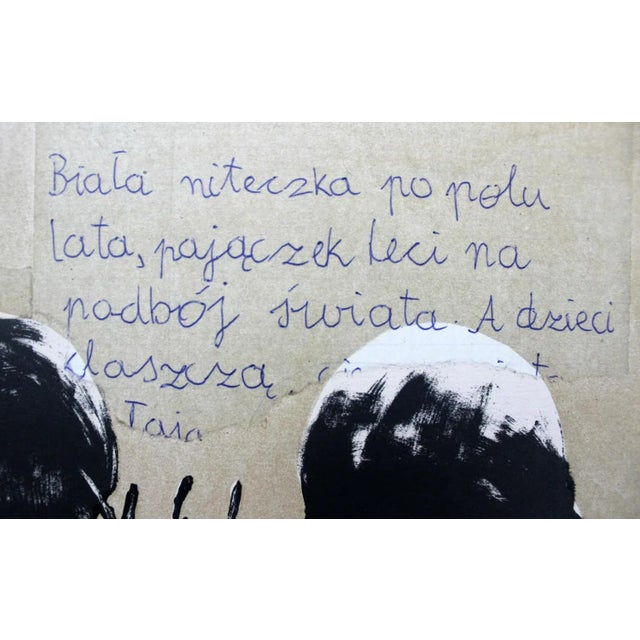 Biała niteczka po polu
lata, pajączek leci na
podbój świata. A dzieci
klaszczą